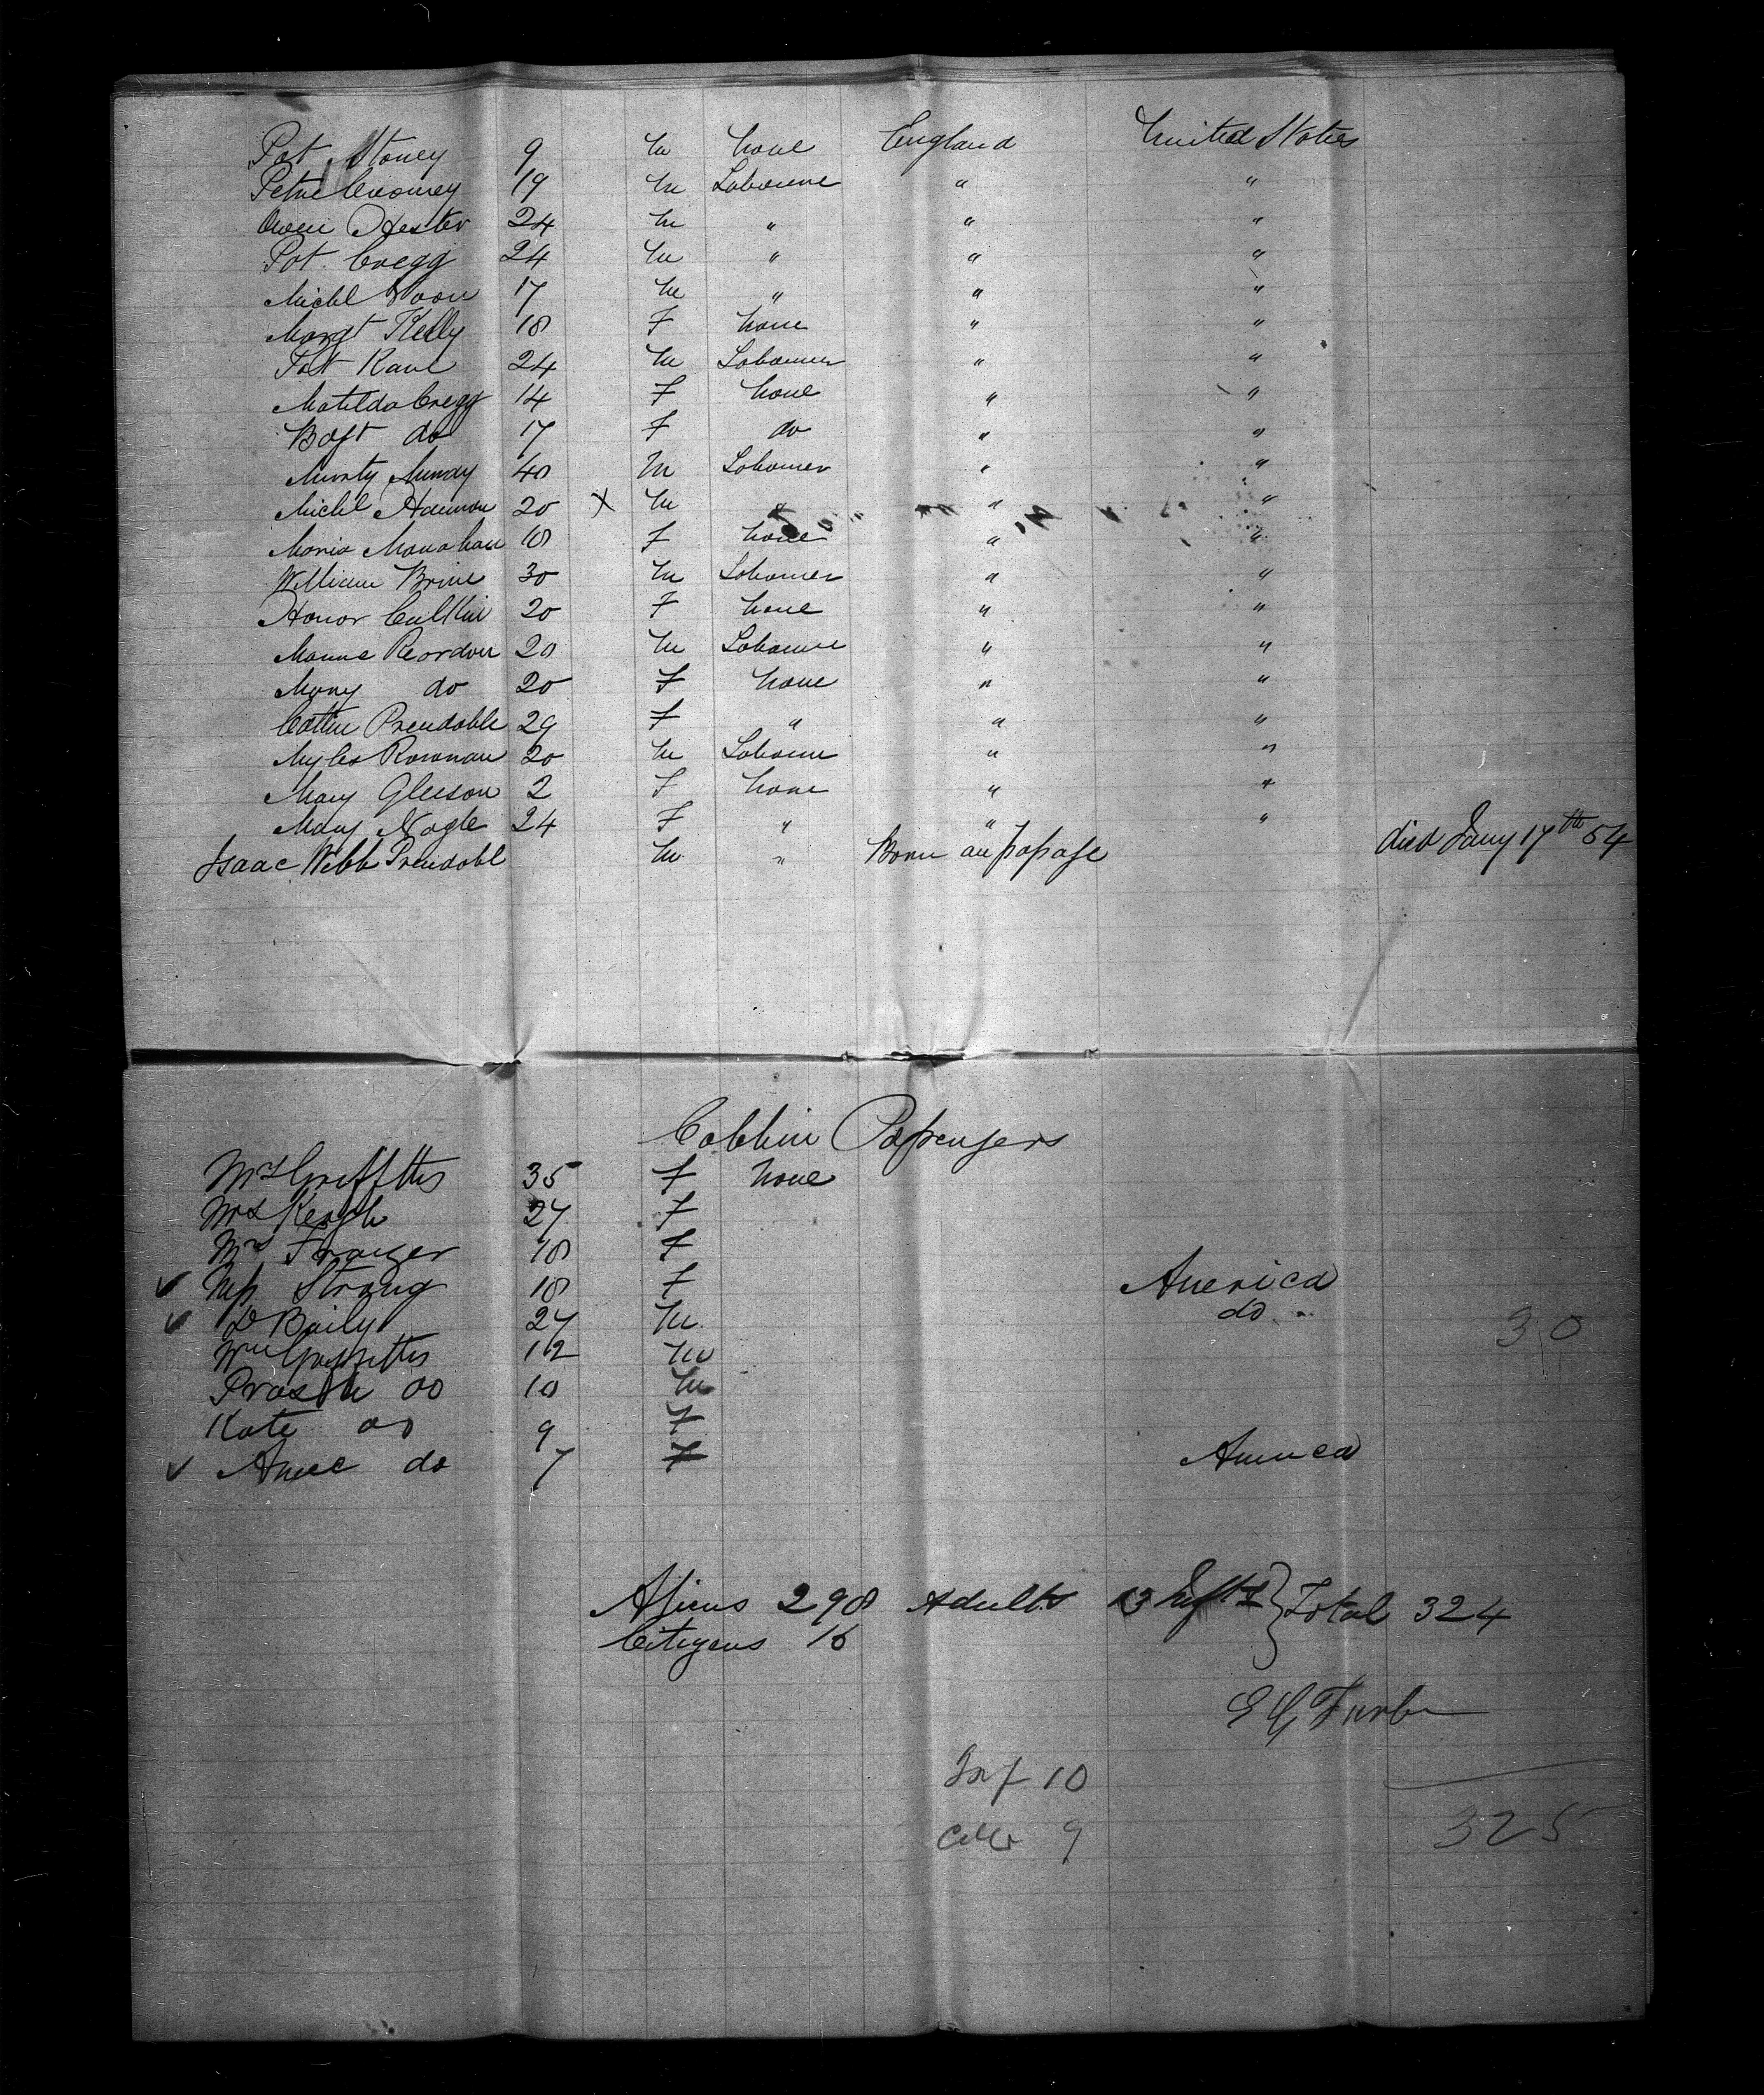 Pat Stoney 9 M None England United States
Peter Croomey 19 M Labourer " "
Owen Hester 24 M " " "
Pat Cregg 24 M " " "
Michl Noon 17 M " " "
Margt Kelly 18 F None " "
Pat Kane 24 M Labourer " "
Matilda Cregg 14 F None " "
do 17 F do " "
Murty Murray 40 M Labourer " "
Michl Hannon 20 X M " " "
Maria Monahan 18 F None " "
William Brine 30 M Labourer " "
Honor Culkin 20 F None " "
Maurice Reardon 20 M Labourer " "
Mary do 20 F None " "
Cathe Prendable 29 F " " "
Myles Rownan 20 M Labourer " "
Mary Gleeson 2 F None " "
Mary Nagle 24 F " " "
Isaac Webb Prendabl M " Born on passage died Jany 17th 54
Cabbin Passengers
Mrs Griffths 35 F None
Mrs Keogh 27 F
Mrs 18 F
Miss Strong 18 F America
D Baily 27 M do 30
Wm Griffiths 12 M
do 10 M
Kate do 9 F
Anne do 7 F America
Aliens 298 Adults 13 Infts } Total 324
Citizens 16
E G Furber
Inf 10
9 325